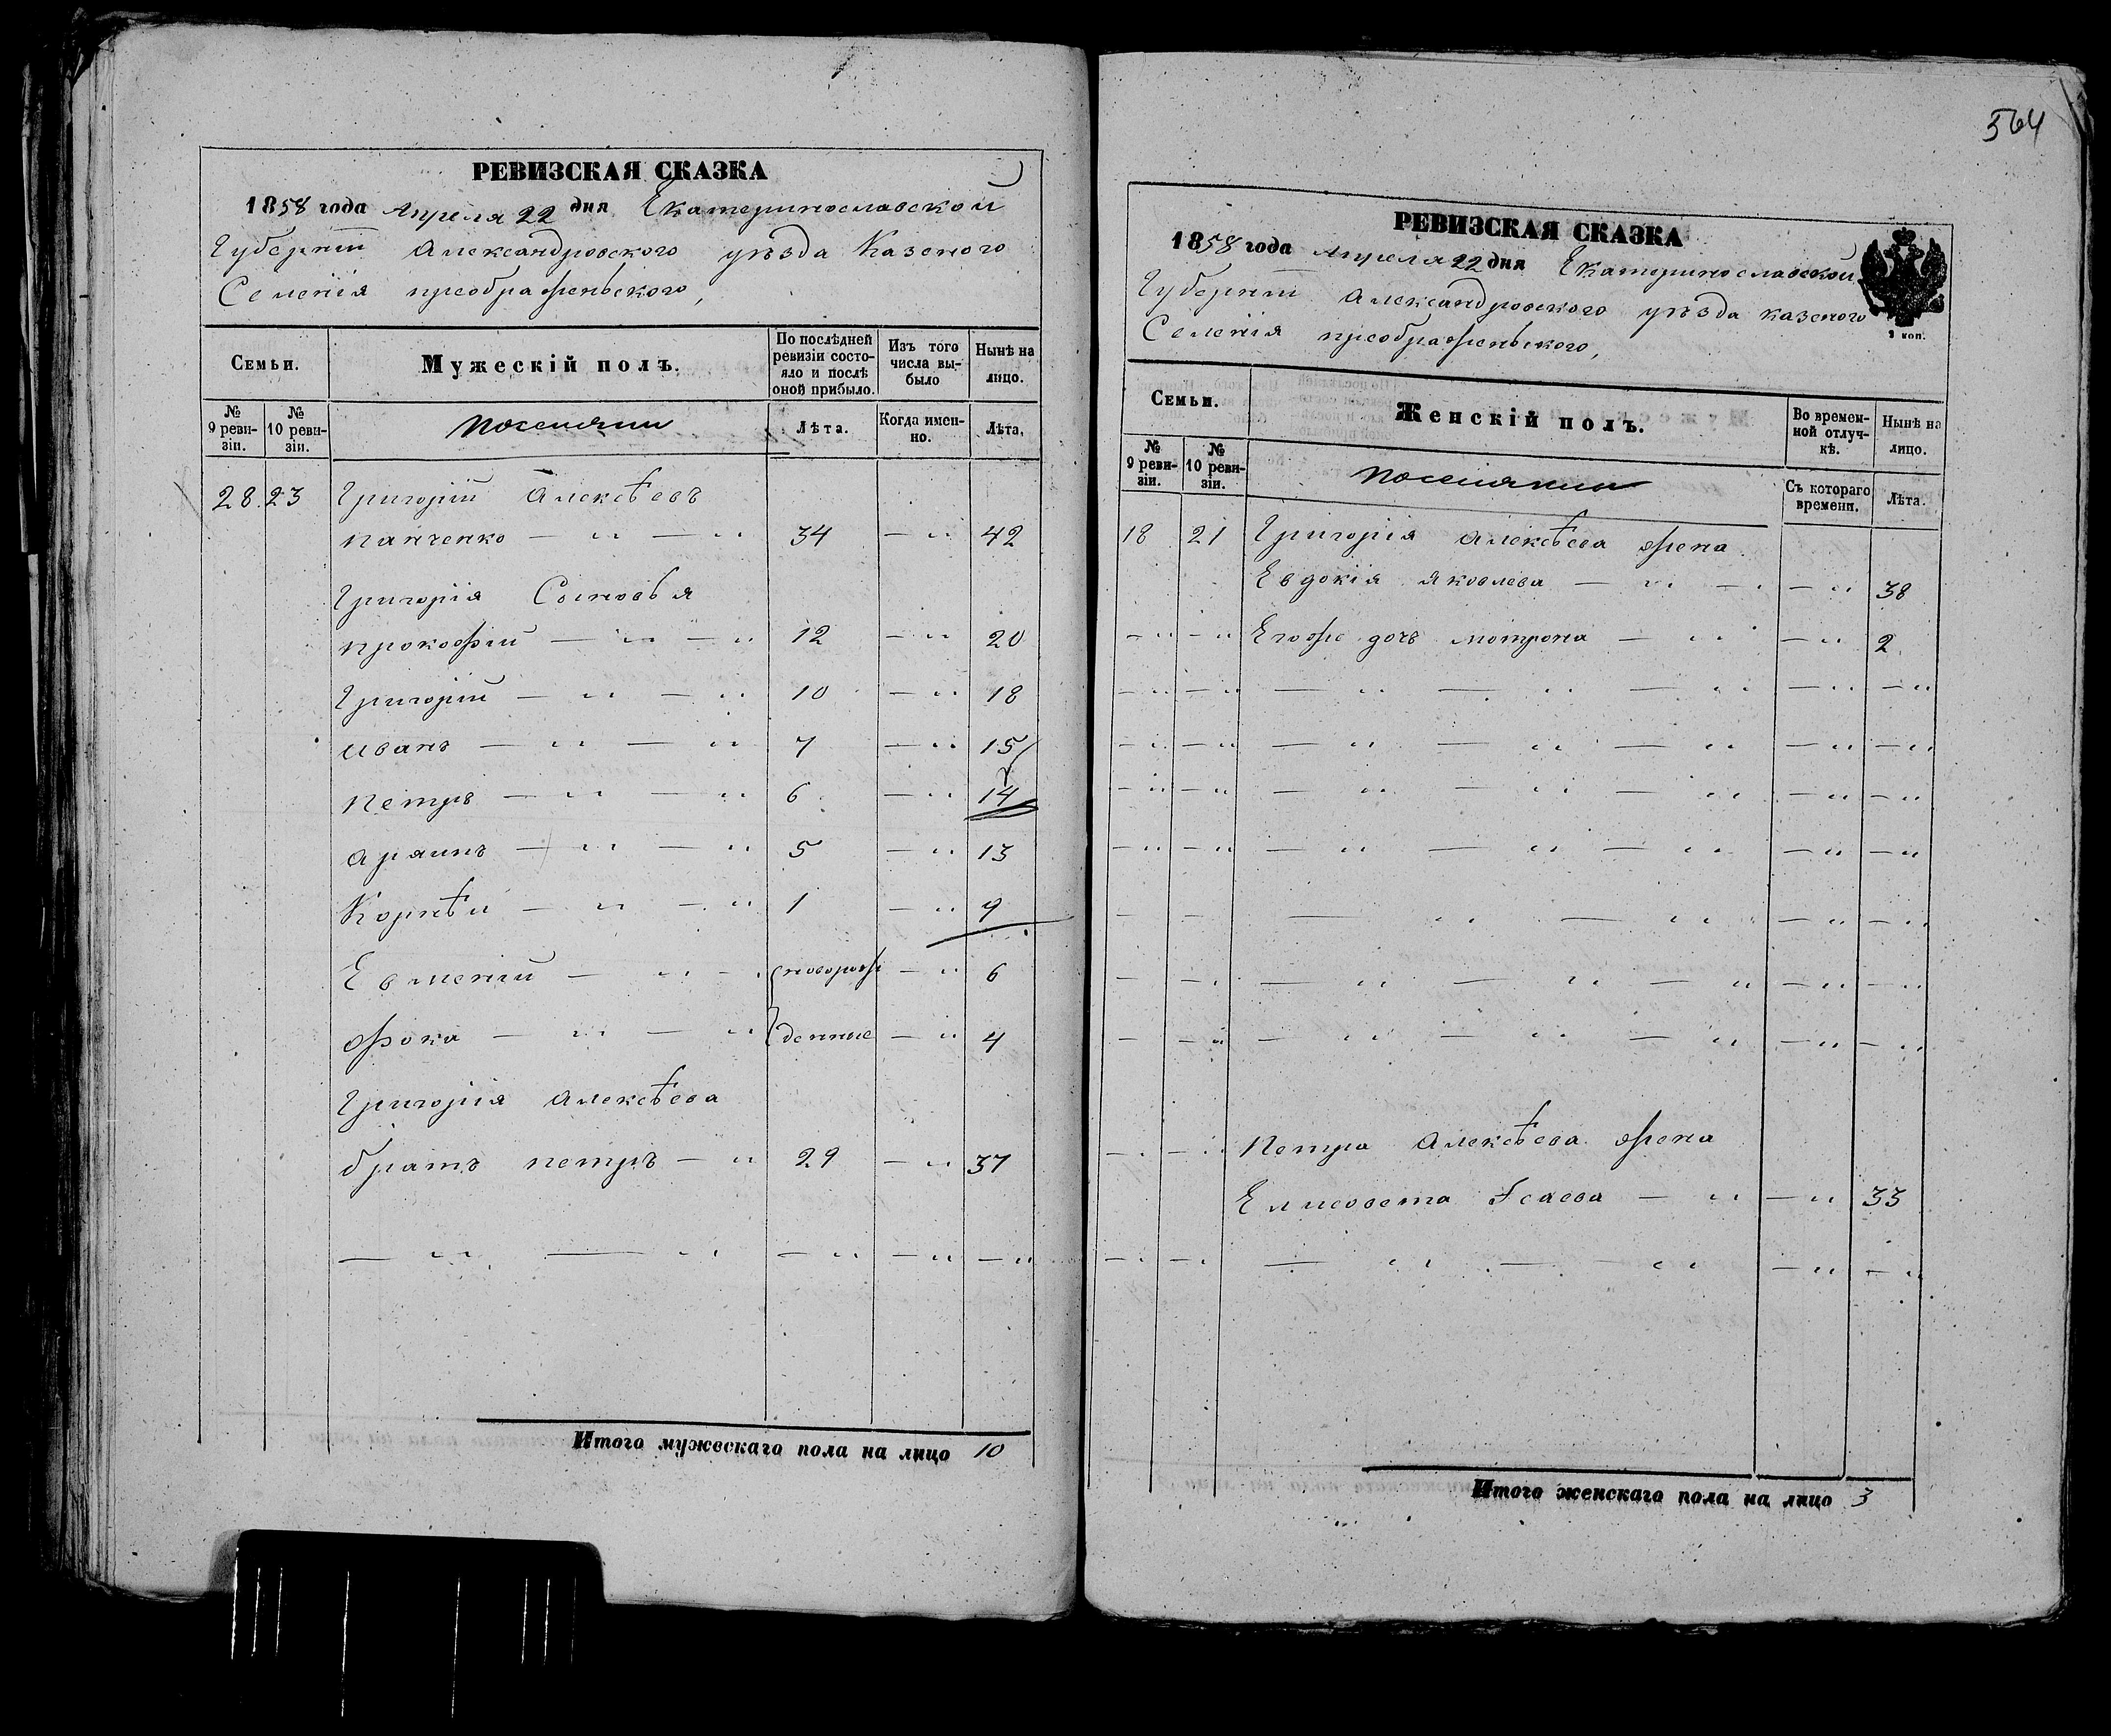 РЕВИЗСКАЯ СКАЗКА
1858 года Апреля 22 дня Екатеринославской
Губернiи Александровского уѣзда Казеного
Селенiя преображеньского,
Семьи.
Мужескiй полъ.
По послѣдней ревизiи состояло и послѣ оной прибыло.
Изъ того числа выбыло
Нынѣ на лицо.
№ 9 ревизiи.
№ 10 ревизiи.
поселяни
Лѣта.
Когда именно.
Лѣта.
28. 23 Григорiй Алексѣевъ
панченко — " — " 34 — " 42
Григорiя Сыновья
прокофiй — " — " 12 — " 20
Григорiй — " — " 10 — " 18
иванъ — " — " 7 — " 15
петръ — " — " 6 — " 14
— " — " 5 — " 13
Корнѣй — " — " 1 — " 9
Евменiй — " — новорож — " 6
фока — " — " денные — " 4
Григорiя Алексѣева
братъ петръ — " 29 — " 37
— " — " — " — " — "
Итого мужескаго пола на лицо 10
564
РЕВИЗСКАЯ СКАЗКА
1858 года Апреля 22 дня Екатеринославской
Губернiи Александровского уѣзда казеного
Селенiя преображеньского,
3 коп.
Семьи.
Женскiй полъ.
Во временной отлучкѣ.
Нынѣ на лицо.
№ 9 ревизiи.
№ 10 ревизiи.
поселянки
Съ котораго времени.
Лѣта.
18 21 Григорiя Алексѣева жена
Евдокiя яковлева — " — — " 38
— " — " Егоже дочь мотрона — " — " 2
— " — " — " — " — " — " — "
— " — " — " — " — " — " — "
— " — " — " — " — " — " — "
— " — " — " — " — " — " — "
— — — " — " — " — "
— — " — " — " — " — " — "
— — " — " — " — " — " — "
— " — " Петра Алексѣева жена
Елисовета Исаева — " — " 33
— " — " — " — " — " — "
Итого женскаго пола на лицо 3